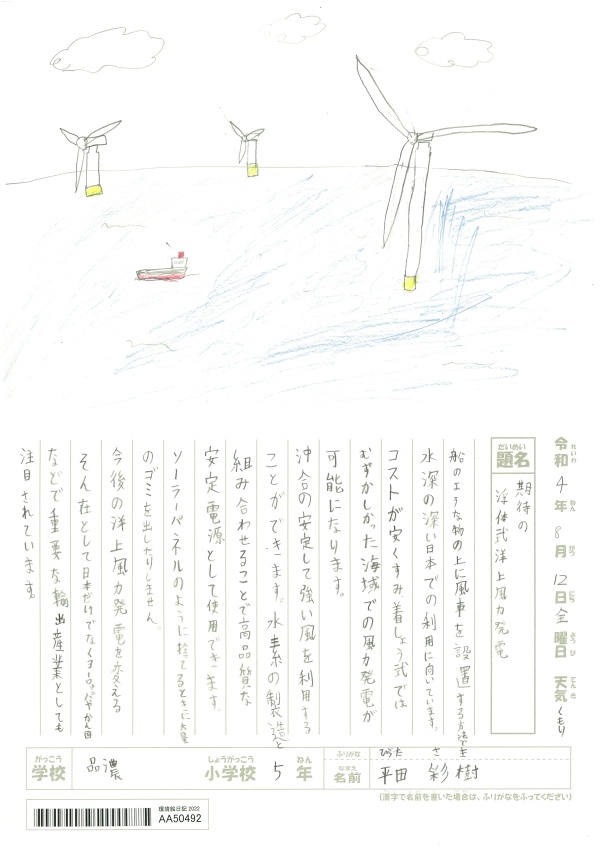 令和4年8月12日金曜日 天気くもり
れいわ ねん がつ にち ようび てんき
だいめい
題名
期待の
浮体式洋上風力発電
船のような物の上に風車を設置する方法で
水深の深い日本での利用に向いています。
コストが安くすみ着しょう式では
むずかしかった海域での風力発電が
可能になります。
沖合の安定して強い風を利用する
ことができます。水素の製造と
組み合わせることで高品質な
安定電源として使用できます。
ソーラーパネルのように捨てるときに大量
のゴミを出したりしません。
今後の洋上風力発電を変える
そん在として日本だけでなくヨーロッパやかん国
などで重要な輸出産業としても
注目されています。
がっこう
学校
品濃
しょうがっこう
小学校
5
ねん
年
ふりがな
ひらた さき
なまえ
名前
平田 彩樹
(漢字で名前を書いた場合は、ふりがなをふってください)
環境絵日記 2022
AA50492